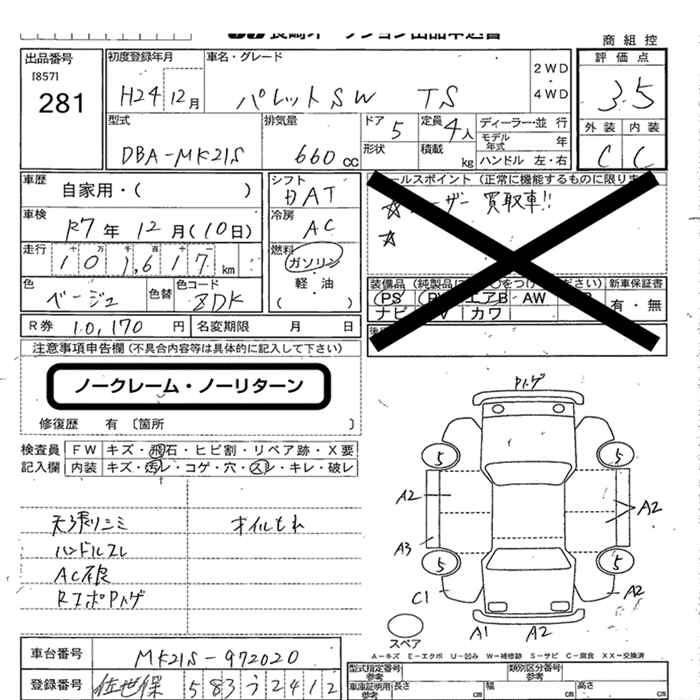 商組控
出品番号
[857]
281
初度登録年月
H24 12月
車名・グレード
パレットSW TS
2WD
・
4WD
評価点
3.5
外装 内装
C C
型式
DBA-MK21S
排気量
660cc
ドア
5
形状
定員
4人
積載 kg
ディーラー・並行
モデル年式 年
ハンドル 左・右
車歴
自家用・( )
シフト
AT
車検
R7年 12月(10日)
冷房
AC
走行 十 万 千 百 十 一
101,617km
燃料
ガソリン
軽・油
( )
色
ベージュ
色替
色コード
ZDK
R券 10,170円
名変期限 月 日
セールスポイント(正常に機能するものに限ります
☆ユーザー買取車!!
☆
装備品 新車保証書
PS エアB AW
ナビ カワ
有・無
注意事項申告欄(不具合内容等は具体的に記入して下さい)
ノークレーム・ノーリターン
修復歴 有 〔箇所 〕
検査員 FW キズ・飛石・ヒビ割・リペア跡・X要
記入欄 内装 キズ・汚レ・コゲ・穴・スレ・キレ・破レ
天張シミ オイルもれ
ハンドルスレ
AC不良
Pトゲ
5 5
A2 A2
A3
5 5
C1 A2
スペア
A1 A2
A-キズ E-エクボ U-凹み W-補修跡 S-サビ C-腐食 XX-交換済
車台番号 MK21S-972020
登録番号 佐世保 583 う 2412
型式指定番号 参考
類別区分番号 参考
車庫証明用 参考 長さ cm 幅 cm 高さ cm